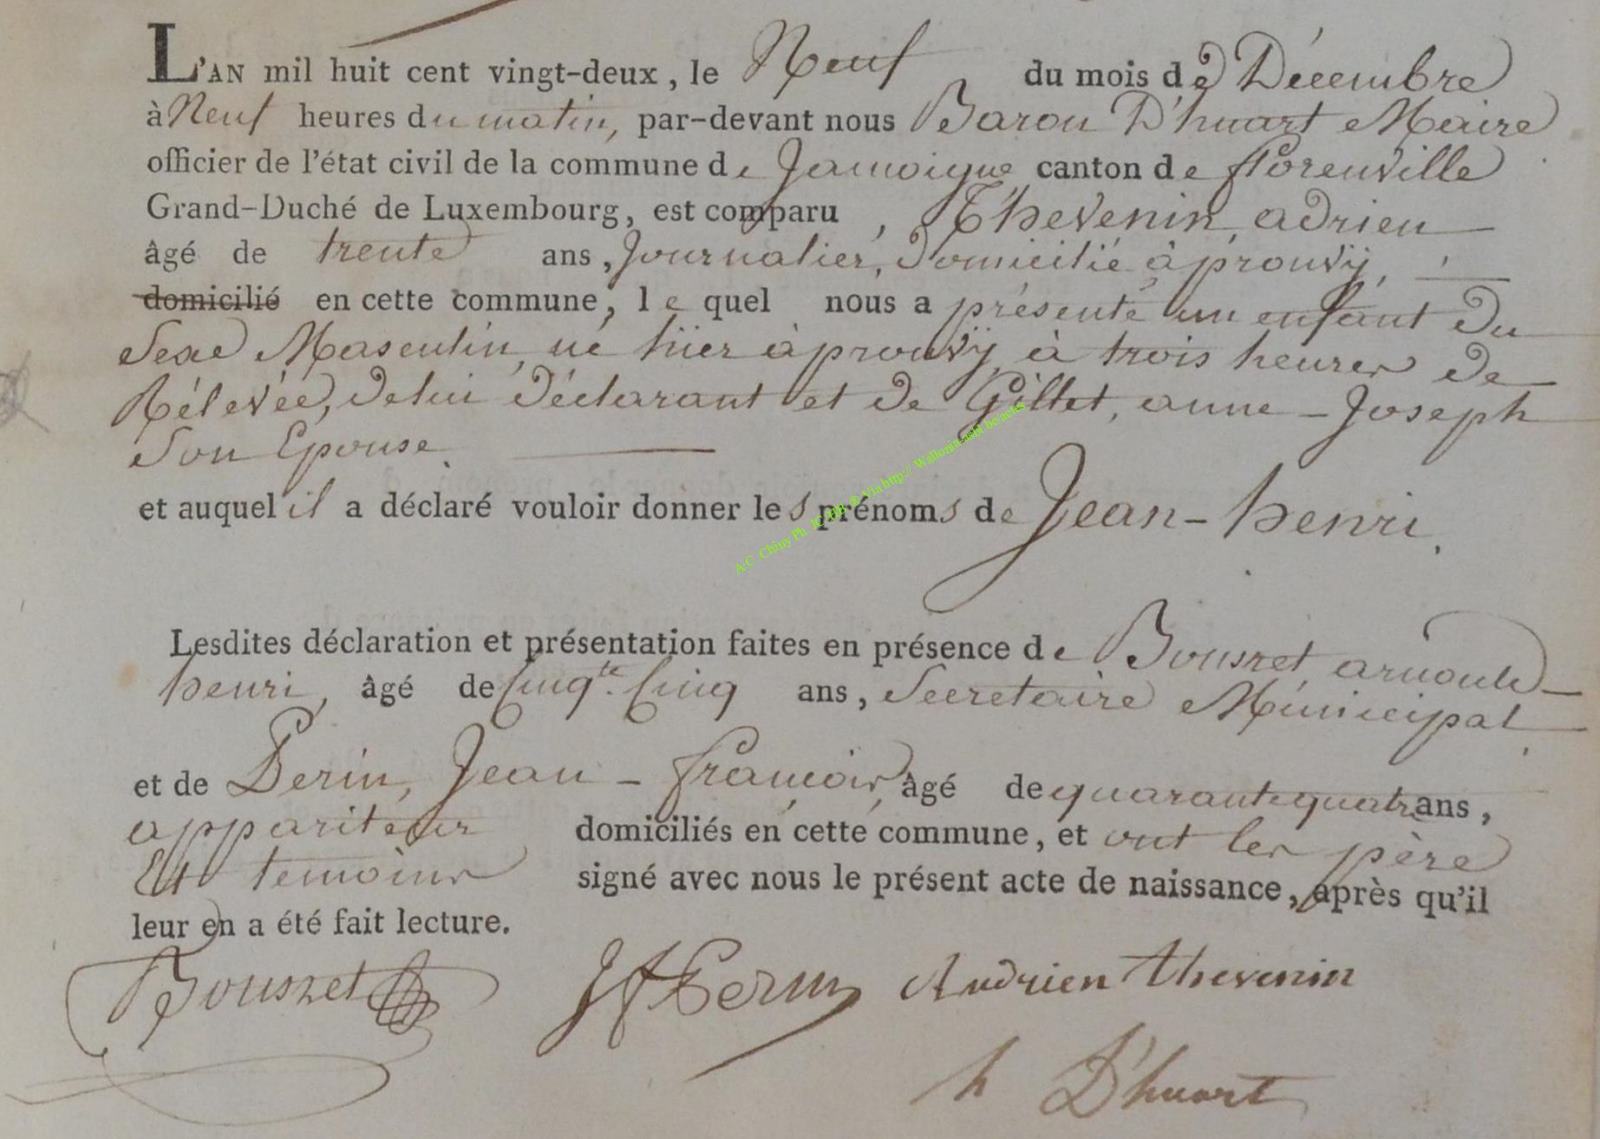 L'AN mil huit cent vingt-deux, le Neuf du mois de Décembre
à Neuf heures du matin, par-devant nous Baron D'huart Maire
officier de l'état civil de la commune de Jamoigne canton de florenville
Grand-Duché de Luxembourg, est comparu, Thevenin, adrien
âgé de trente ans, Journalier, Domicilié à prouvÿ,
domicilié en cette commune, le quel nous a présenté un enfant Du
Sexe Masculin, né hier à prouvÿ, à trois heures De
Rélevée, de lui Déclarant et De Gillet, anne-Joseph
Son Epouse.
et auquel il a déclaré vouloir donner les prénoms de Jean-henri.
Lesdites déclaration et présentation faites en présence de Bousret, arnould
henri, âgé de Cinqte. Cinq ans, Secretaire Municipal
et de Perin, Jean-françois, âgé de quarante quatre ans,
appariteur domiciliés en cette commune, et ont les père
Et temoins signé avec nous le présent acte de naissance, après qu'il
leur en a été fait lecture.
Bousret JfPerin Andrien thevenin
h D'huart
A.C. Chiny Ph. Via http://